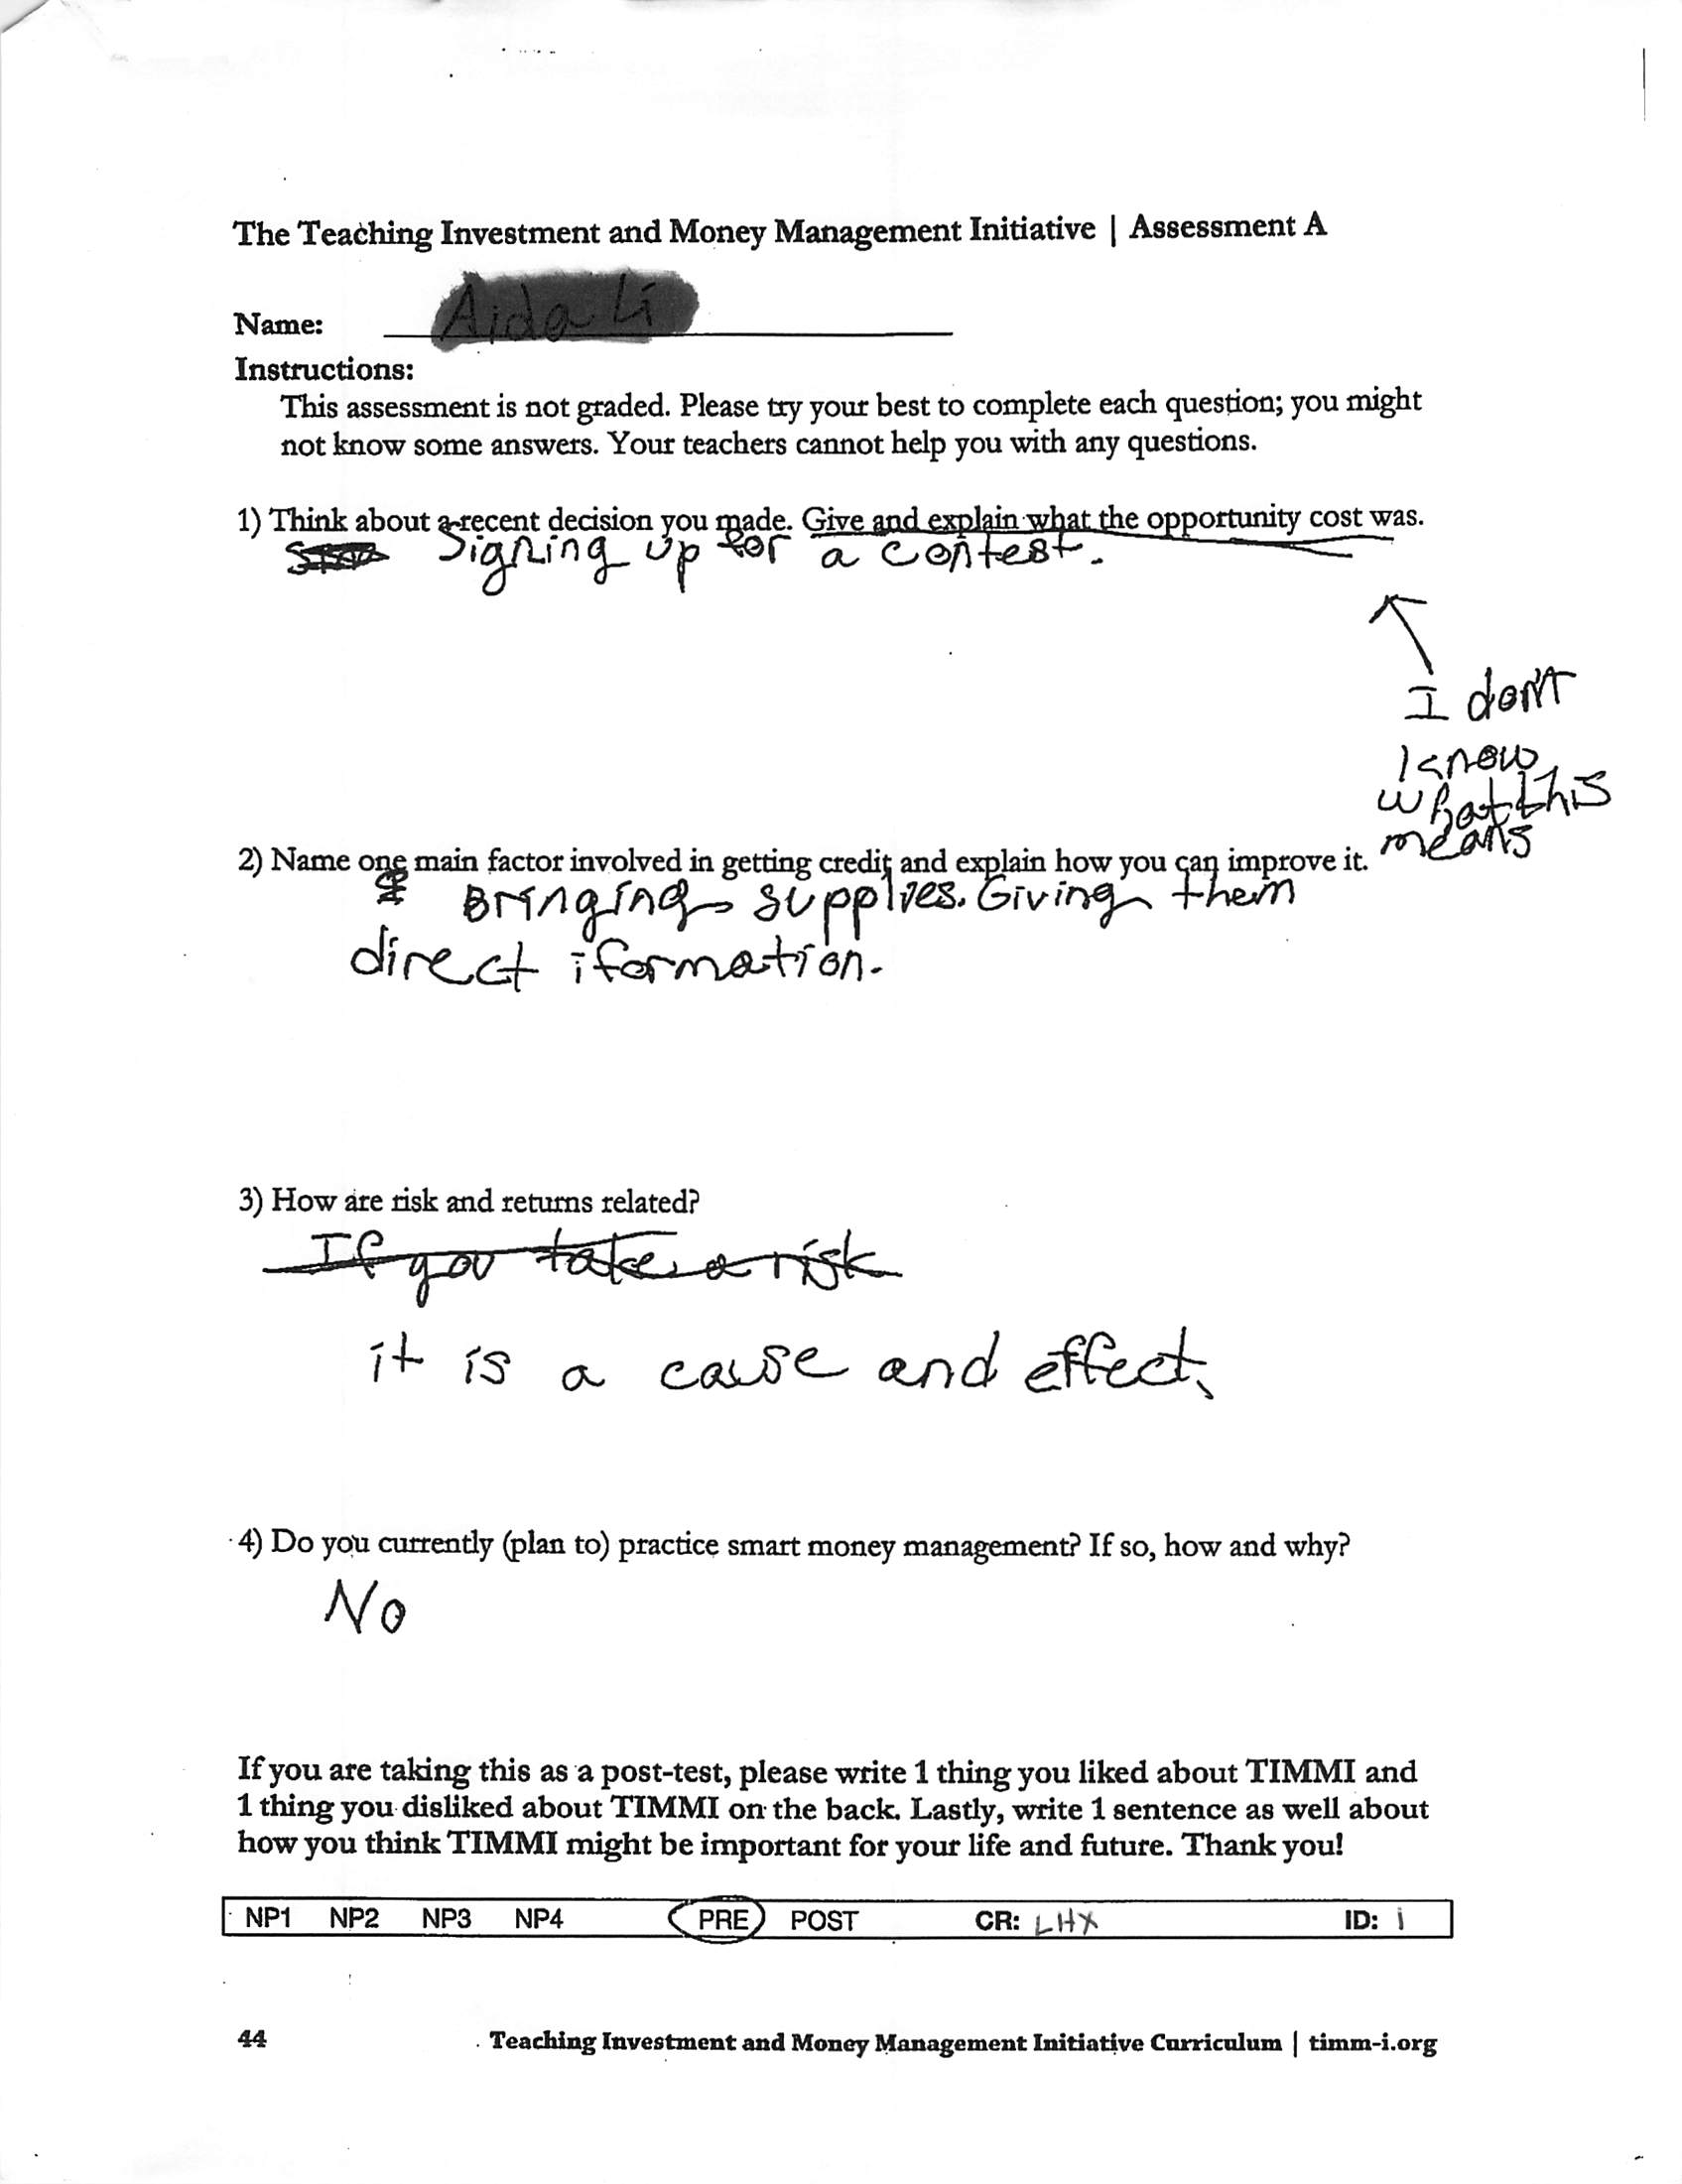 The Teaching Investment and Money Management Initiative | Assessment A
Name:
Instructions:
This assessment is not graded. Please try your best to complete each question; you might
not know some answers. Your teachers cannot help you with any questions.
1) Think about a recent decision you made. Give and explain what the opportunity cost was.
Signing up for a contest.
I don't
know
what this
means
2) Name one main factor involved in getting credit and explain how you can improve it.
Bringing supplies. Giving them
direct iformation.
3) How are risk and returns related?
If you take a risk
it is a cause and effect.
4) Do you currently (plan to) practice smart money management? If so, how and why?
No
If you are taking this as a post-test, please write 1 thing you liked about TIMMI and
1 thing you disliked about TIMMI on the back. Lastly, write 1 sentence as well about
how you think TIMMI might be important for your life and future. Thank you!
NP1 NP2 NP3 NP4 PRE POST CR: LHX ID: 1
44 Teaching Investment and Money Management Initiative Curriculum | timm-i.org